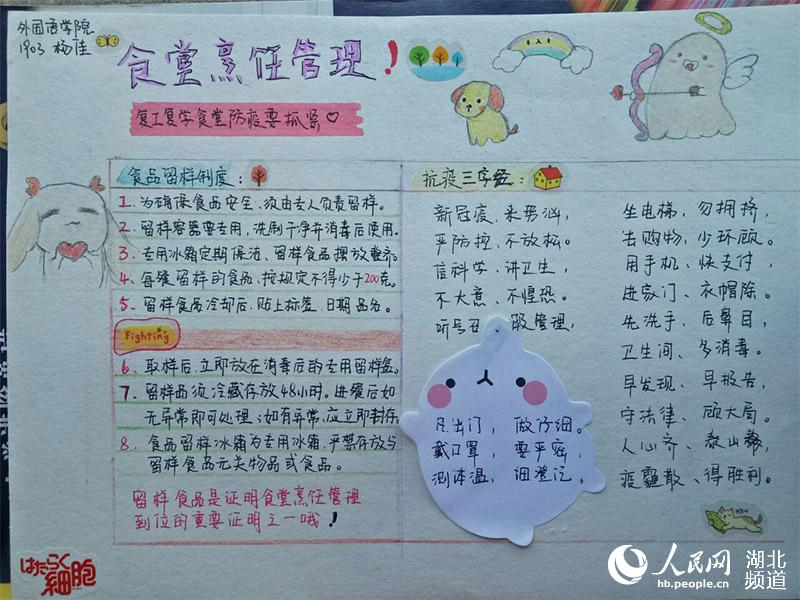 外国语学院
1903 杨佳
食堂烹饪管理！
复工复学食堂防疫要抓紧♡
食品留样制度：
1、为确保食品安全、须由专人负责留样。
2、留样容器要专用，洗刷干净并消毒后使用。
3、专用冰箱定期保洁、留样食品摆放整齐。
4、每餐留样的食品、按规定不得少于200克。
5、留样食品冷却后、贴上标签、日期品名。
Fighting
6、取样后、立即放在消毒后的专用留样盒。
7、留样品须冷藏存放48小时。进餐后如
无异常即可处理；如有异常、应立即封存。
8、食品留样冰箱为专用冰箱、严禁存放与
留样食品无关物品或食品。
留样食品是证明食堂烹饪管理
到位的重要证明之一哦！
抗疫三字经：
新冠疫、来势汹，
严防控、不放松。
信科学、讲卫生，
不大意、不惶恐。
听号召、服管理，
凡出门，做仔细。
戴口罩，要严密，
测体温，细登记。
坐电梯，勿拥挤，
去购物，少环顾。
用手机、快支付，
进家门、衣帽除。
先洗手、后鼻目，
卫生间、多消毒。
早发现、早报告，
守法律、顾大局。
人心齐、泰山移，
疫霾散、得胜利。
はたらく
細胞
人民网 湖北
频道
hb.people.cn